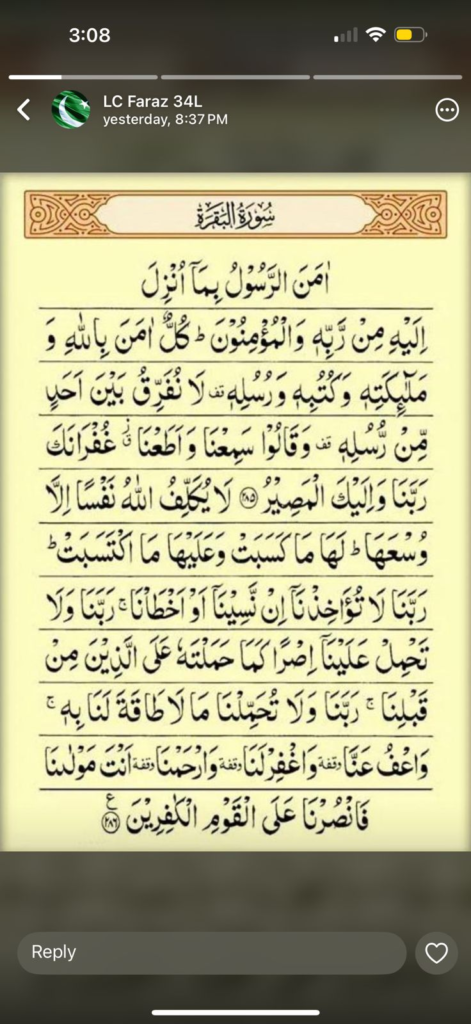 3:08
LC Faraz 34L
yesterday, 8:37 PM
سُوْرَةُ الْبَقَرَة
اٰمَنَ الرَّسُوْلُ بِمَاۤ اُنْزِلَ
اِلَيْهِ مِنْ رَّبِّهٖ وَالْمُؤْمِنُوْنَ ؕ كُلٌّ اٰمَنَ بِاللّٰهِ وَ
مَلٰٓئِكَتِهٖ وَكُتُبِهٖ وَرُسُلِهٖ قف لَا نُفَرِّقُ بَيْنَ اَحَدٍ
مِّنْ رُّسُلِهٖ قف وَقَالُوْا سَمِعْنَا وَاَطَعْنَا ۗ غُفْرَانَكَ
رَبَّنَا وَاِلَيْكَ الْمَصِيْرُ ﴿۲۸۵﴾ لَا يُكَلِّفُ اللّٰهُ نَفْسًا اِلَّا
وُسْعَهَا ؕ لَهَا مَا كَسَبَتْ وَعَلَيْهَا مَا اكْتَسَبَتْ ؕ
رَبَّنَا لَا تُؤَاخِذْنَاۤ اِنْ نَّسِيْنَاۤ اَوْ اَخْطَاْنَا ۚ رَبَّنَا وَلَا
تَحْمِلْ عَلَيْنَاۤ اِصْرًا كَمَا حَمَلْتَهٗ عَلَى الَّذِيْنَ مِنْ
قَبْلِنَا ۚ رَبَّنَا وَلَا تُحَمِّلْنَا مَا لَا طَاقَةَ لَنَا بِهٖ ۚ
وَاعْفُ عَنَّا وقفة وَاغْفِرْ لَنَا وقفة وَارْحَمْنَا وقفة اَنْتَ مَوْلٰىنَا
فَانْصُرْنَا عَلَى الْقَوْمِ الْكٰفِرِيْنَ ﴿۲۸۶﴾ ع
Reply